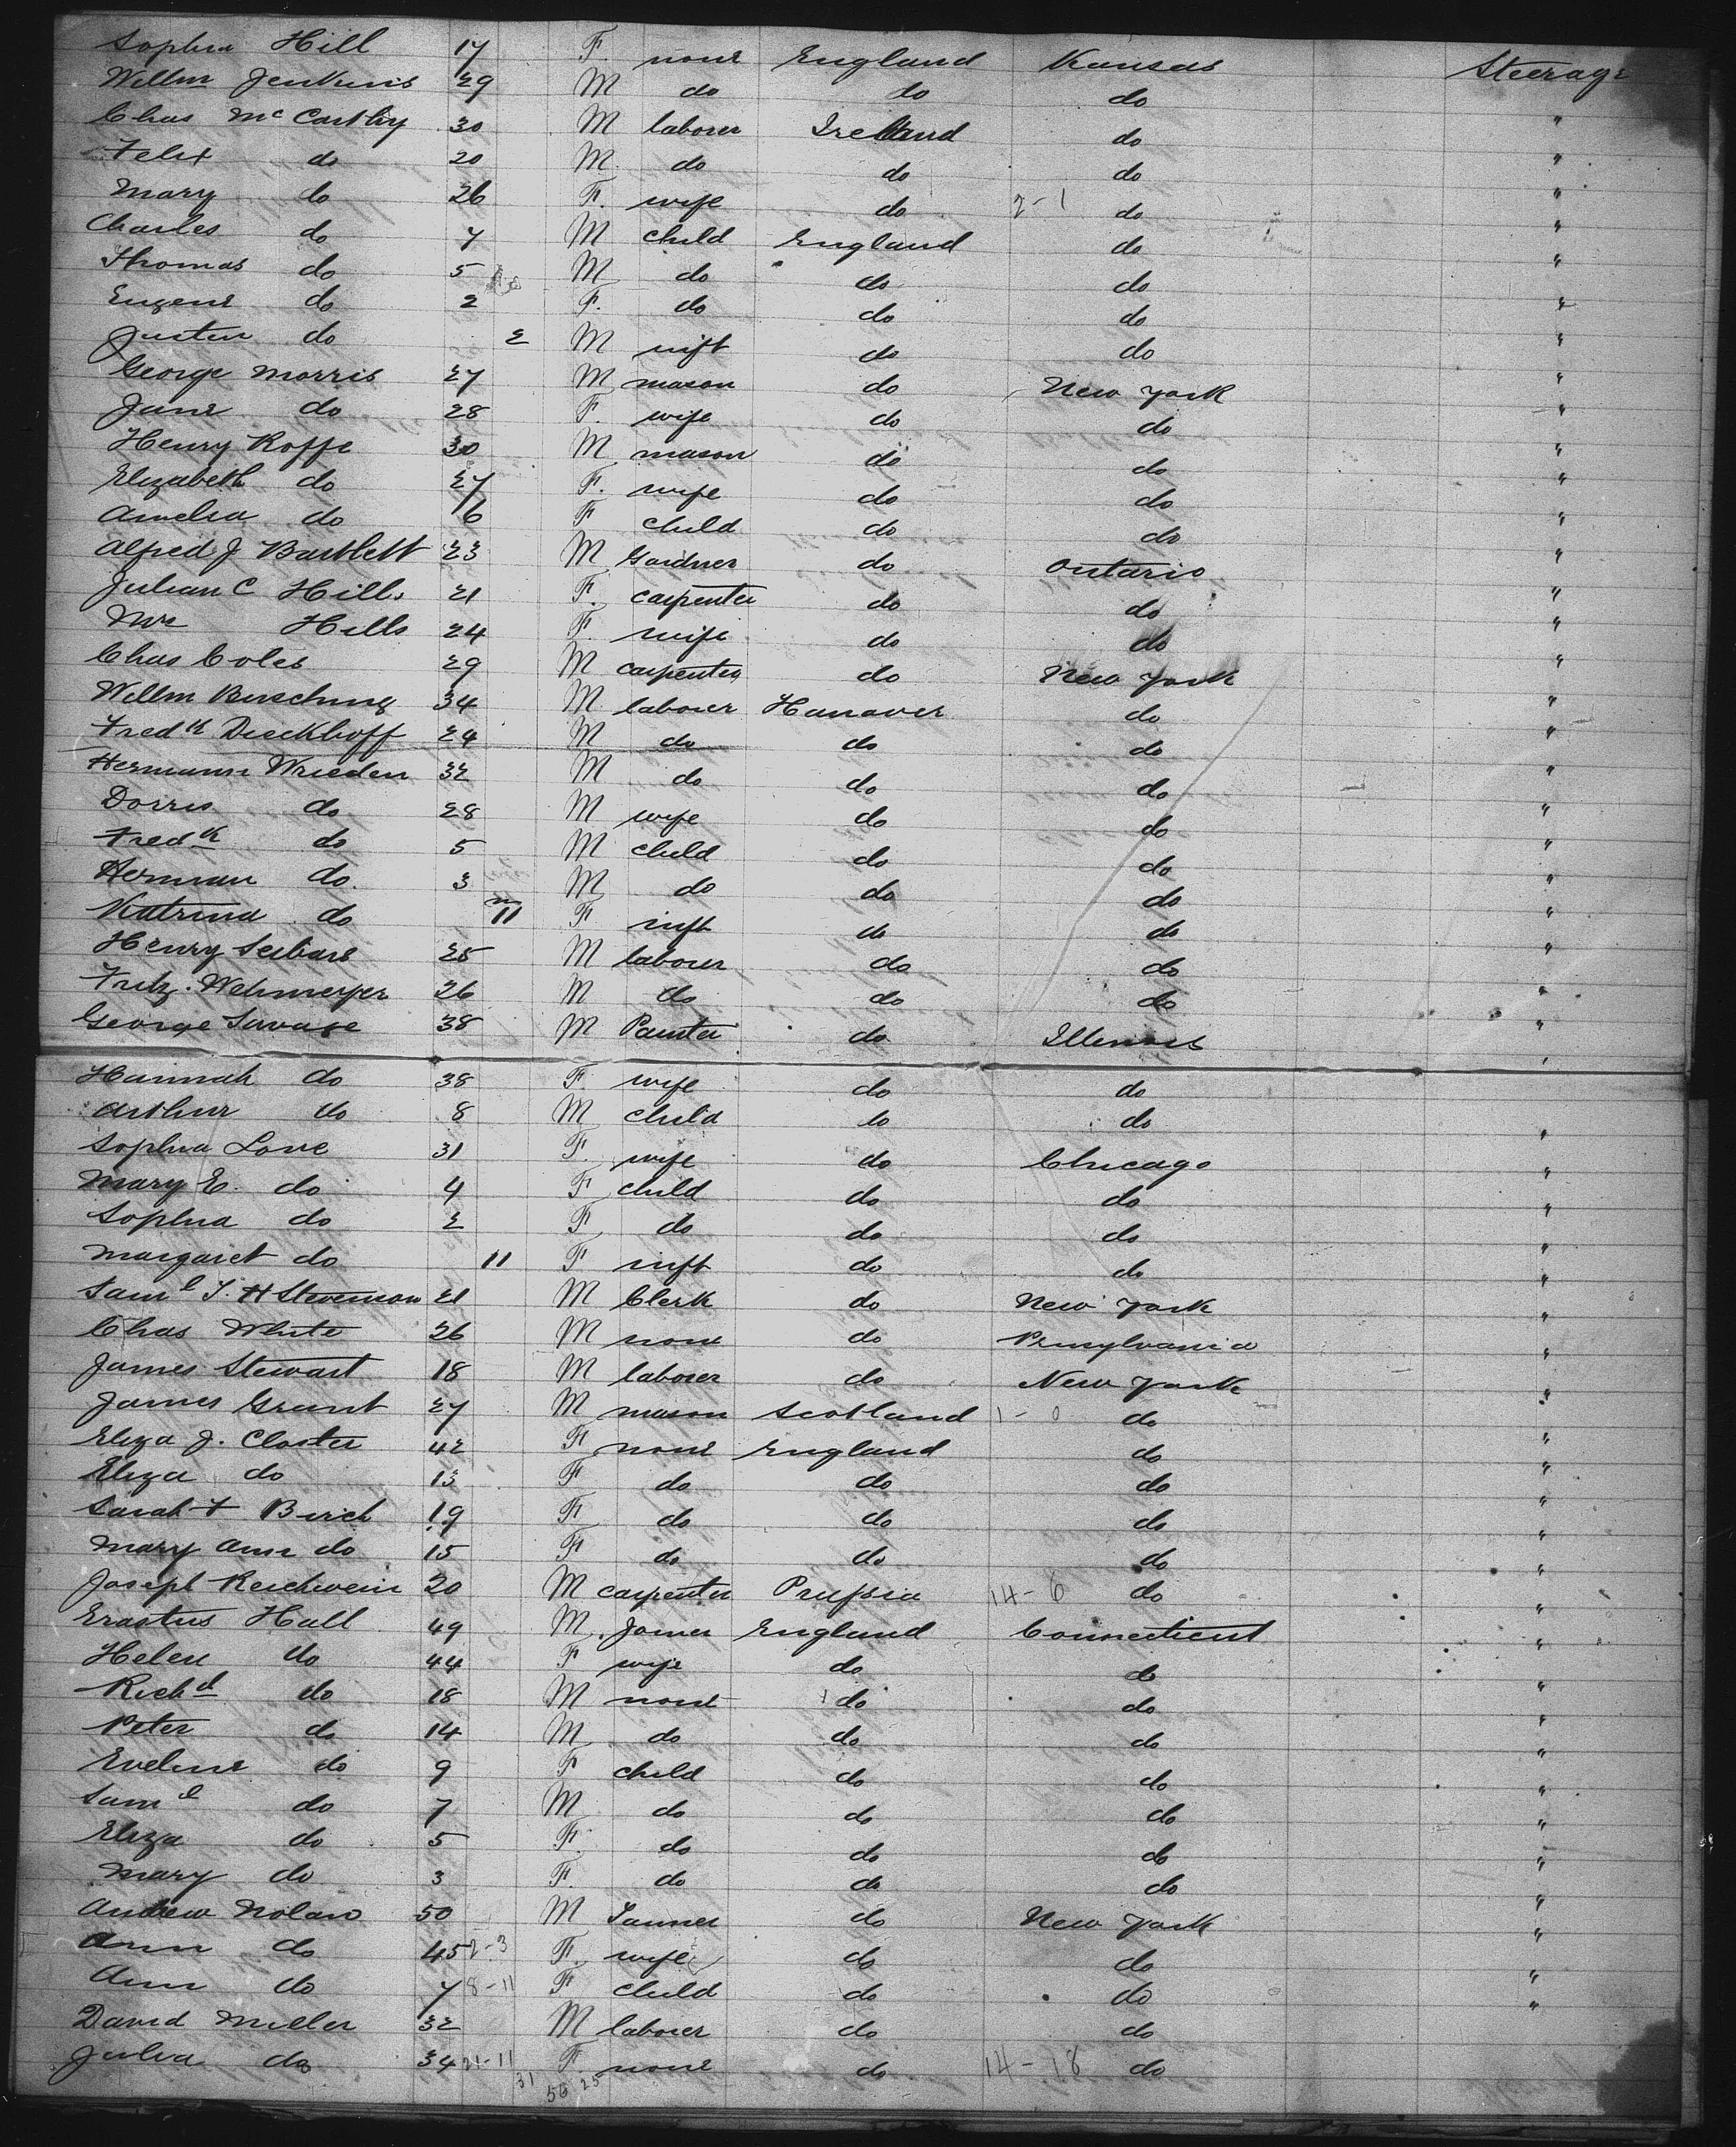 Sophia Hill 17 F. none England Kansas Steerage
Willm Jenkins 29 M do do do "
Chas McCarthy 30 M laborer Ireland do "
Felix do 20 M. do do do "
Mary do 26 F. wife do 2-1 do "
Charles do 7 M child England do "
Thomas do 5 M do do do "
Eugene do 2 F. do do do "
Justin do 2 M inft do do "
George Morris 27 M mason do New York "
Jane do 28 F. wife do do "
Henry Roffe 30 M mason do do "
Elizabeth do 27 F. wife do do "
Amelia do 6 F child do do "
Alfred J Bartlett 23 M Gardner do Ontario "
Julian C Hills 21 F. carpenter do do "
Mrs Hills 24 F. wife do do "
Chas Coles 29 M carpenter do New York "
Willm Busching 34 M laborer Hanover do "
Fredk Dieckhoff 24 M do do do "
Hermann Wrieden 32 M do do do "
Dorris do 28 M wife do do "
Fredk do 5 M child do do "
Herman do. 3 M do do do "
Katrina do m 11 F inft do do "
Henry 25 M laborer do do "
Fritz. Wehmeyer 26 M do do do "
George Savage 38 M Painter do Illinois "
Hannah do 38 F. wife do do
Arthur do 8 M child do do "
Sophia Love 31 F. wife do Chicago "
Mary E. do 4 F child do do "
Sophia do 2 F do do do "
Margaret do 11 F inft do do "
Saml T. H Stevenson 21 M Clerk do New York "
Chas White 26 M none do Pennsylvania "
James Stewart 18 M laborer do New York "
James Grant 27 M mason Scotland 1-0 do "
Eliza J. Closter 42 F none England do "
Eliza do 13 F do do do "
Sarah F Birch 19 F do do do "
Mary Ann do 15 F do do do "
Joseph Reichwein 20 M carpenter Prussia 14-6 do "
Erastus Hall 49 M. Joiner England Connecticut "
Helen do 44 F wife do do "
Richd do 18 M none do do "
Peter do 14 M do do do "
Eveline do 9 F child do do "
Saml do 7 M do do do "
Eliza do 5 F. do do do "
Mary do 3 F. do do do "
Andrew Nolan 50 M Tanner do New York "
Ann do 45 2-3 F. wife do do "
Ann do 7 8-11 F child do do "
David Miller 32 M laborer do do
Julia do 34 21-11 F none do 14-18 do
31 56 25